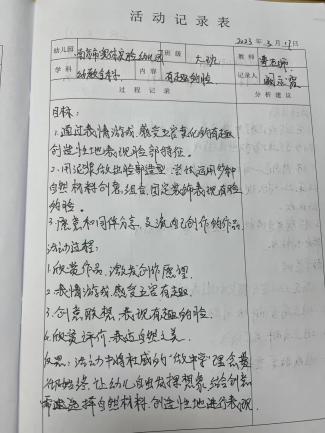 活动记录表
2023年3月17日
幼儿园 南京市实验幼儿园 班级 大班 教师
学科 幼教学科 内容 有趣的脸 记录人
过程记录 分析建议
目标:
1.通过表情游戏,感受五官变化的有趣
创造性地表现脸部特征。
2.用泥浆做出脸部造型,尝试运用多种
自然材料创意、组合、固定装饰表现有趣
的脸。
3.愿意和同伴分享、交流自己创作的作品
活动过程:
1.欣赏作品,激发创作愿望.
2.表情游戏,感受五官有趣.
3.创意联想,表现有趣的脸.
4.欣赏评价,表达自然之美.
反思:活动中将杜威的“做中学”理念贯
彻始终,让幼儿自由发挥想象,结合创意
需要选择自然材料,创造性地进行表现.